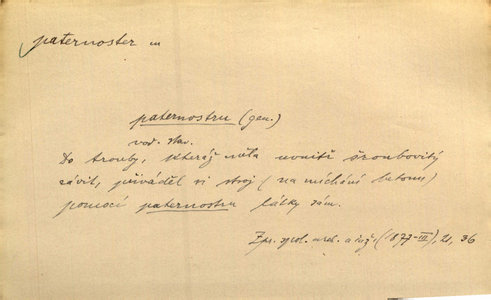 paternoster m
paternostru (gen.)
vod. stav.
Do trouby, kteráž měla uvnitř šroubovitý
závit, přiváděl si stroj (na míchání betonu)
pomocí paternostru látky sám.
Zpr. spol. arch. a inž. (1877-III), 21, 36